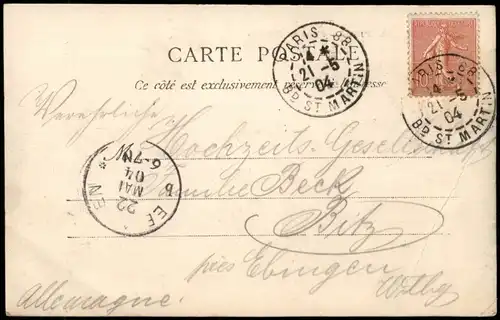 CARTE POSTALE
Ce côté est exclusivement réservé à l'adresse
PARIS
4 *
21 -5
04
Bᴅ ST MARTIN
PARIS
4 *
21 -5
04
Bᴅ ST MARTIN
Verehrliche
Hochzeits-Gesellschaft
Familie Beck
Bitz
près Ebingen
Allemagne. Wttbg
22
MAI
04
6-7N